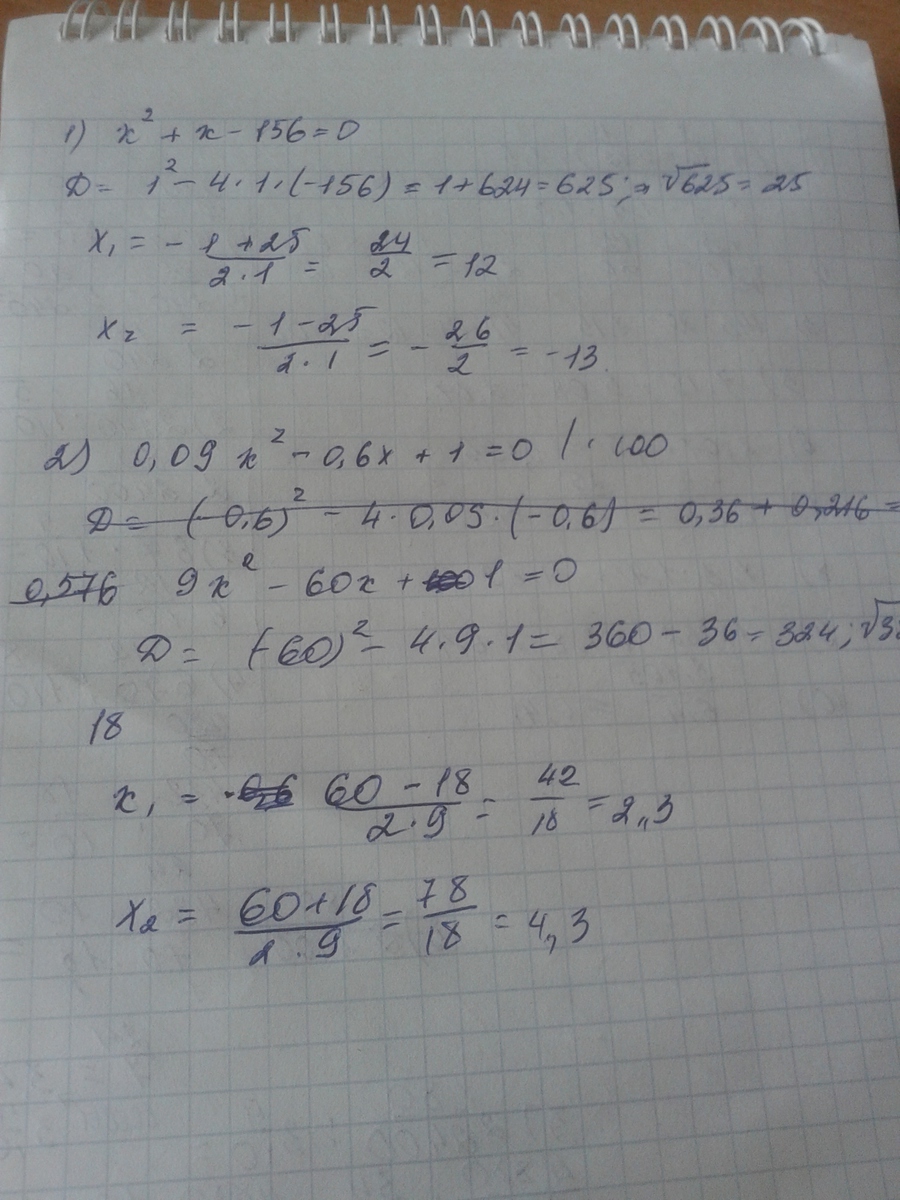 1) x² + x - 156 = 0
D = 1² - 4·1·(-156) = 1 + 624 = 625; = √625 = 25
x₁ = - 1 + 25 / 2·1 = 24/2 = 12
x₂ = - 1 - 25 / 2·1 = - 26/2 = -13.
2) 0,09 x² - 0,6x + 1 = 0 /· 100
D = (-0,6)² - 4·0,09·(-0,6) = 0,36 + 0,216 =
0,576 9x² - 60x + 1 = 0
D = (-60)² - 4·9·1 = 360 - 36 = 324; √32
18
x₁ = 60 - 18 / 2·9 = 42/18 = 2,3
x₂ = 60 + 18 / 2·9 = 78/18 = 4,3